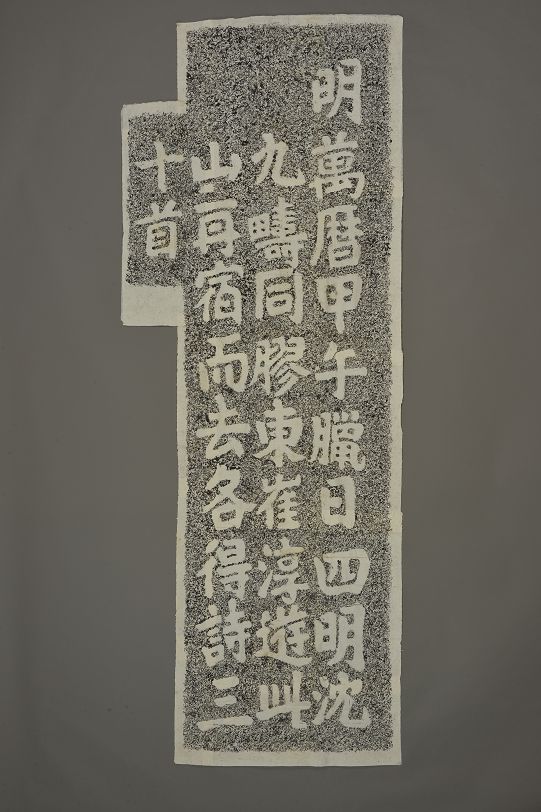 明萬曆甲午臘日四明沈
九疇同膠東崔淳遊此
山再宿而去各得詩三
十首